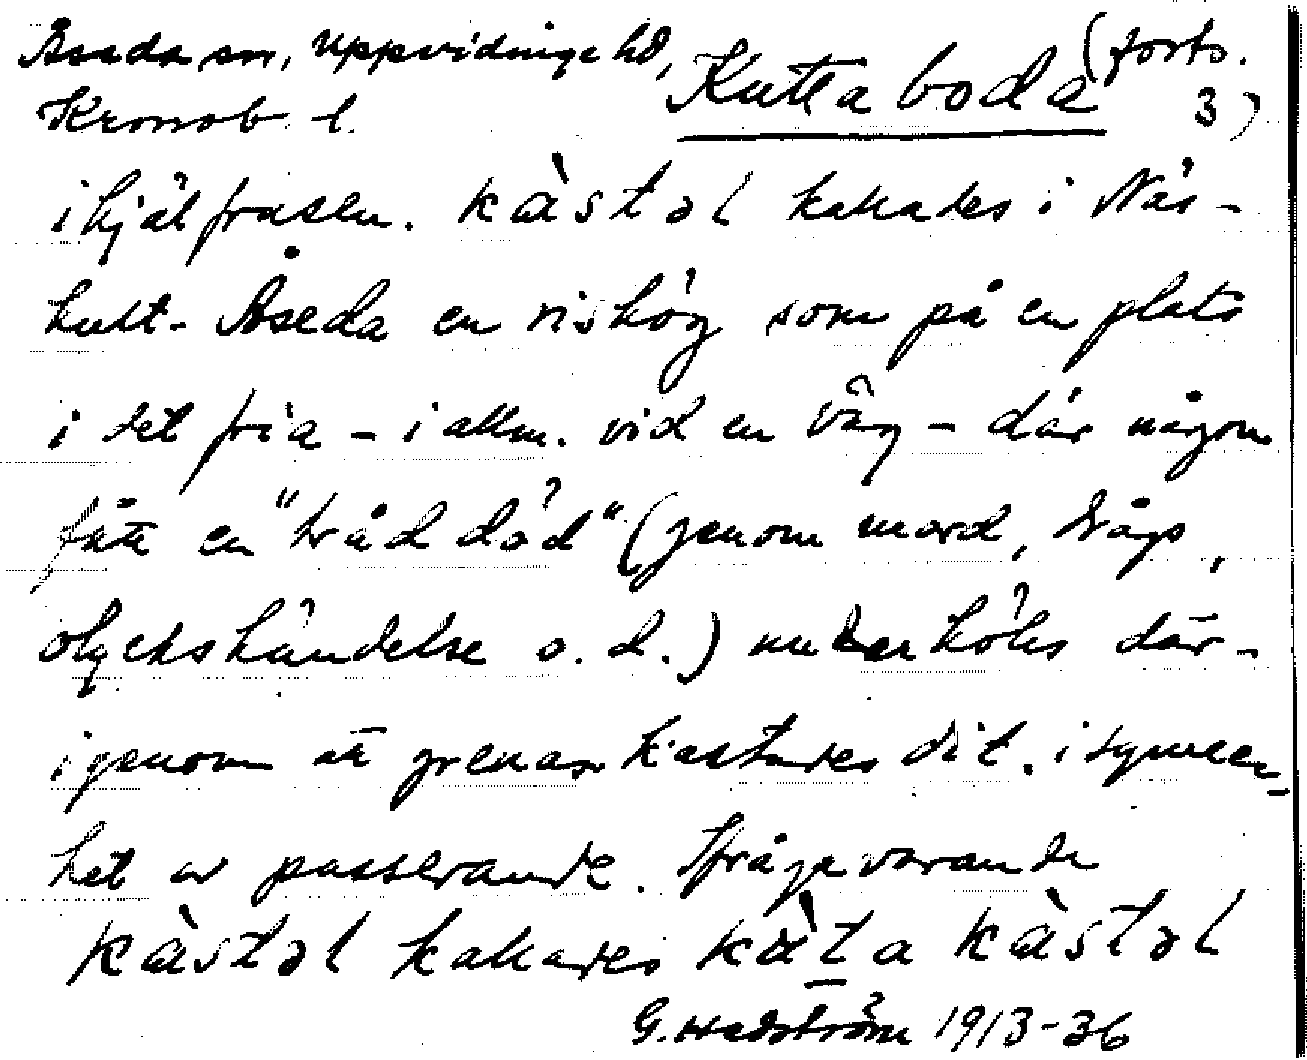 Åseda sn, Uppvidinge hd, Kuttaboda (forts.
Kronob. l. 3)
ihjälfrusen. kàstəl kallades i Näs-
hult-Åseda en rishög som på en plats
i det fria - i allm. vid en väg - där någon
fått en "bråd död" (genom mord, dråp,
olyckshändelse o. d.) underhölls där-
igenom att grenar kastades dit. i synner-
het av passerande. Ifrågavarande
kàstəl kallades kàta kàstəl
G. Hedström 1913-36